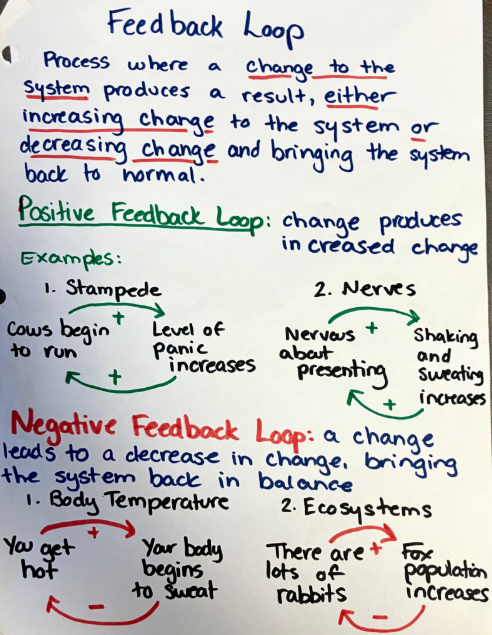 Feedback Loop
Process where a change to the
system produces a result, either
increasing change to the system or
decreasing change and bringing the system
back to normal.
Positive Feedback Loop: change produces
increased change
Examples:
1. Stampede
Cows begin
to run
+
Level of
panic
increases
+
2. Nerves
Nervous
about
presenting
+
Shaking
and
Sweating
increases
+
Negative Feedback Loop: a change
leads to a decrease in change, bringing
the system back in balance
1. Body Temperature
You get
hot
+
Your body
begins
to sweat
-
2. Ecosystems
There are
lots of
rabbits
+
Fox
population
increases
-